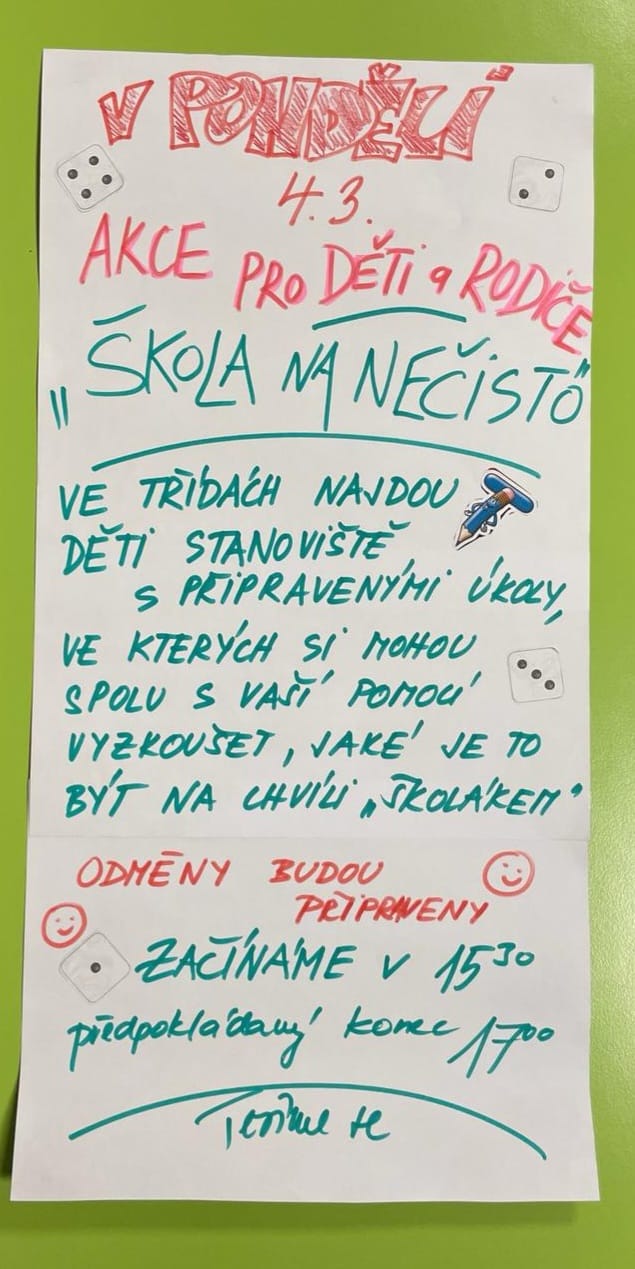 V PONDĚLÍ
4.3.
AKCE PRO DĚTI a RODIČE
„ŠKOLA NA NEČISTO"
VE TŘÍDÁCH NAJDOU
DĚTI STANOVIŠTĚ
S PŘIPRAVENÝMI ÚKOLY,
VE KTERÝCH SI MOHOU
SPOLU S VAŠÍ POMOCÍ
VYZKOUŠET, JAKÉ JE TO
BÝT NA CHVÍLI „ŠKOLÁKEM"
ODMĚNY BUDOU
PŘIPRAVENY
ZAČÍNÁME V 15³⁰
předpokládaný konec 17⁰⁰
Těšíme se